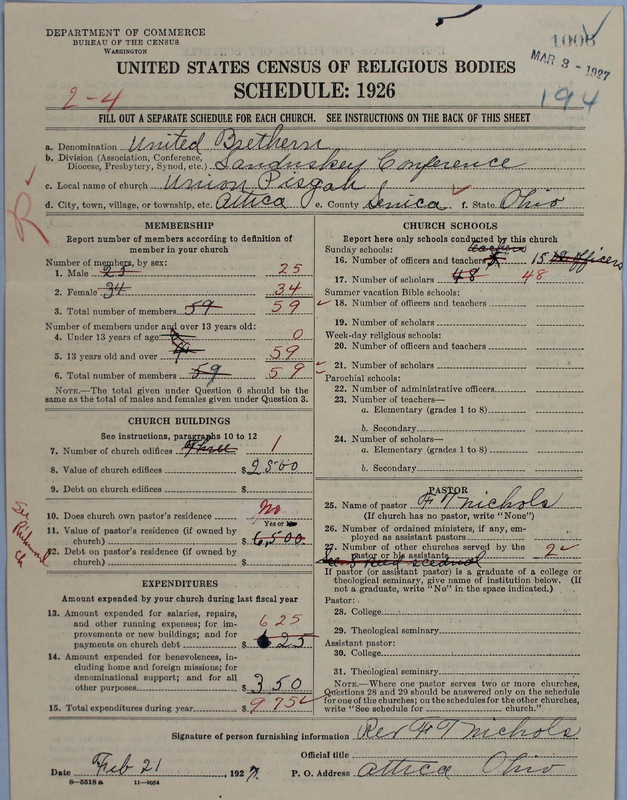 DEPARTMENT OF COMMERCE
BUREAU OF THE CENSUS
WASHINGTON
100B
MAR 3 - 1927
194
UNITED STATES CENSUS OF RELIGIOUS BODIES
SCHEDULE: 1926
2-4
FILL OUT A SEPARATE SCHEDULE FOR EACH CHURCH. SEE INSTRUCTIONS ON THE BACK OF THIS SHEET
a. Denomination United Brethern
b. Division (Association, Conference, Diocese, Presbytery, Synod, etc.) Sanduskey Conference
c. Local name of church Union Pisgah
d. City, town, village, or township, etc. Attica e. County Senica f. State Ohio
R
MEMBERSHIP
Report number of members according to definition of member in your church
Number of members, by sex:
1. Male 25 25
2. Female 34 34
3. Total number of members 59 59
Number of members under and over 13 years old:
4. Under 13 years of age 0
5. 13 years old and over 59
6. Total number of members 59 59
NOTE.—The total given under Question 6 should be the same as the total of males and females given under Question 3.
CHURCH BUILDINGS
See instructions, paragraphs 10 to 12
7. Number of church edifices Three 1
8. Value of church edifices $2500
9. Debt on church edifices $
10. Does church own pastor's residence No
Yes or No
11. Value of pastor's residence (if owned by church) $6,500
12. Debt on pastor's residence (if owned by church) $
See Richmond Ch
EXPENDITURES
Amount expended by your church during last fiscal year
13. Amount expended for salaries, repairs, and other running expenses; for improvements or new buildings; and for payments on church debt $625
625
14. Amount expended for benevolences, including home and foreign missions; for denominational support; and for all other purposes $350
15. Total expenditures during year $975
CHURCH SCHOOLS
Report here only schools conducted by this church
Sunday schools:
teachers
16. Number of officers and teachers 15 12 officers
17. Number of scholars 48 48
Summer vacation Bible schools:
18. Number of officers and teachers
19. Number of scholars
Week-day religious schools:
20. Number of officers and teachers
21. Number of scholars
Parochial schools:
22. Number of administrative officers
23. Number of teachers—
a. Elementary (grades 1 to 8)
b. Secondary
24. Number of scholars—
a. Elementary (grades 1 to 8)
b. Secondary
PASTOR
25. Name of pastor F T Nichols
(If church has no pastor, write "None")
26. Number of ordained ministers, if any, employed as assistant pastors
27. Number of other churches served by the pastor or his assistants 2
If pastor (or assistant pastor) is a graduate of a college or theological seminary, give name of institution below. (If not a graduate, write "No" in the space indicated.)
Pastor:
28. College
29. Theological seminary
Assistant pastor:
30. College
31. Theological seminary
NOTE.—Where one pastor serves two or more churches, Questions 28 and 29 should be answered only on the schedule for one of the churches; on the schedules for the other churches, write "See schedule for church."
Signature of person furnishing information Rev F T Nichols
Official title
Date Feb 21, 1927. P. O. Address Attica Ohio
8-5518 a 11-9054